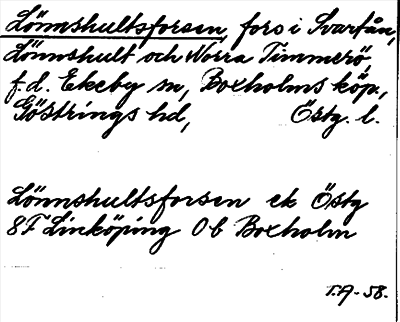 Lönnshultsforsen, fors i Svartån,
Lönnshult och Norra Timmerö,
f.d. Ekeby sn, Boxholms köp.,
Göstrings hd, Östg. l.
Lönnshultsforsen ek Östg
8F Linköping 0b Boxholm
T.A-58.